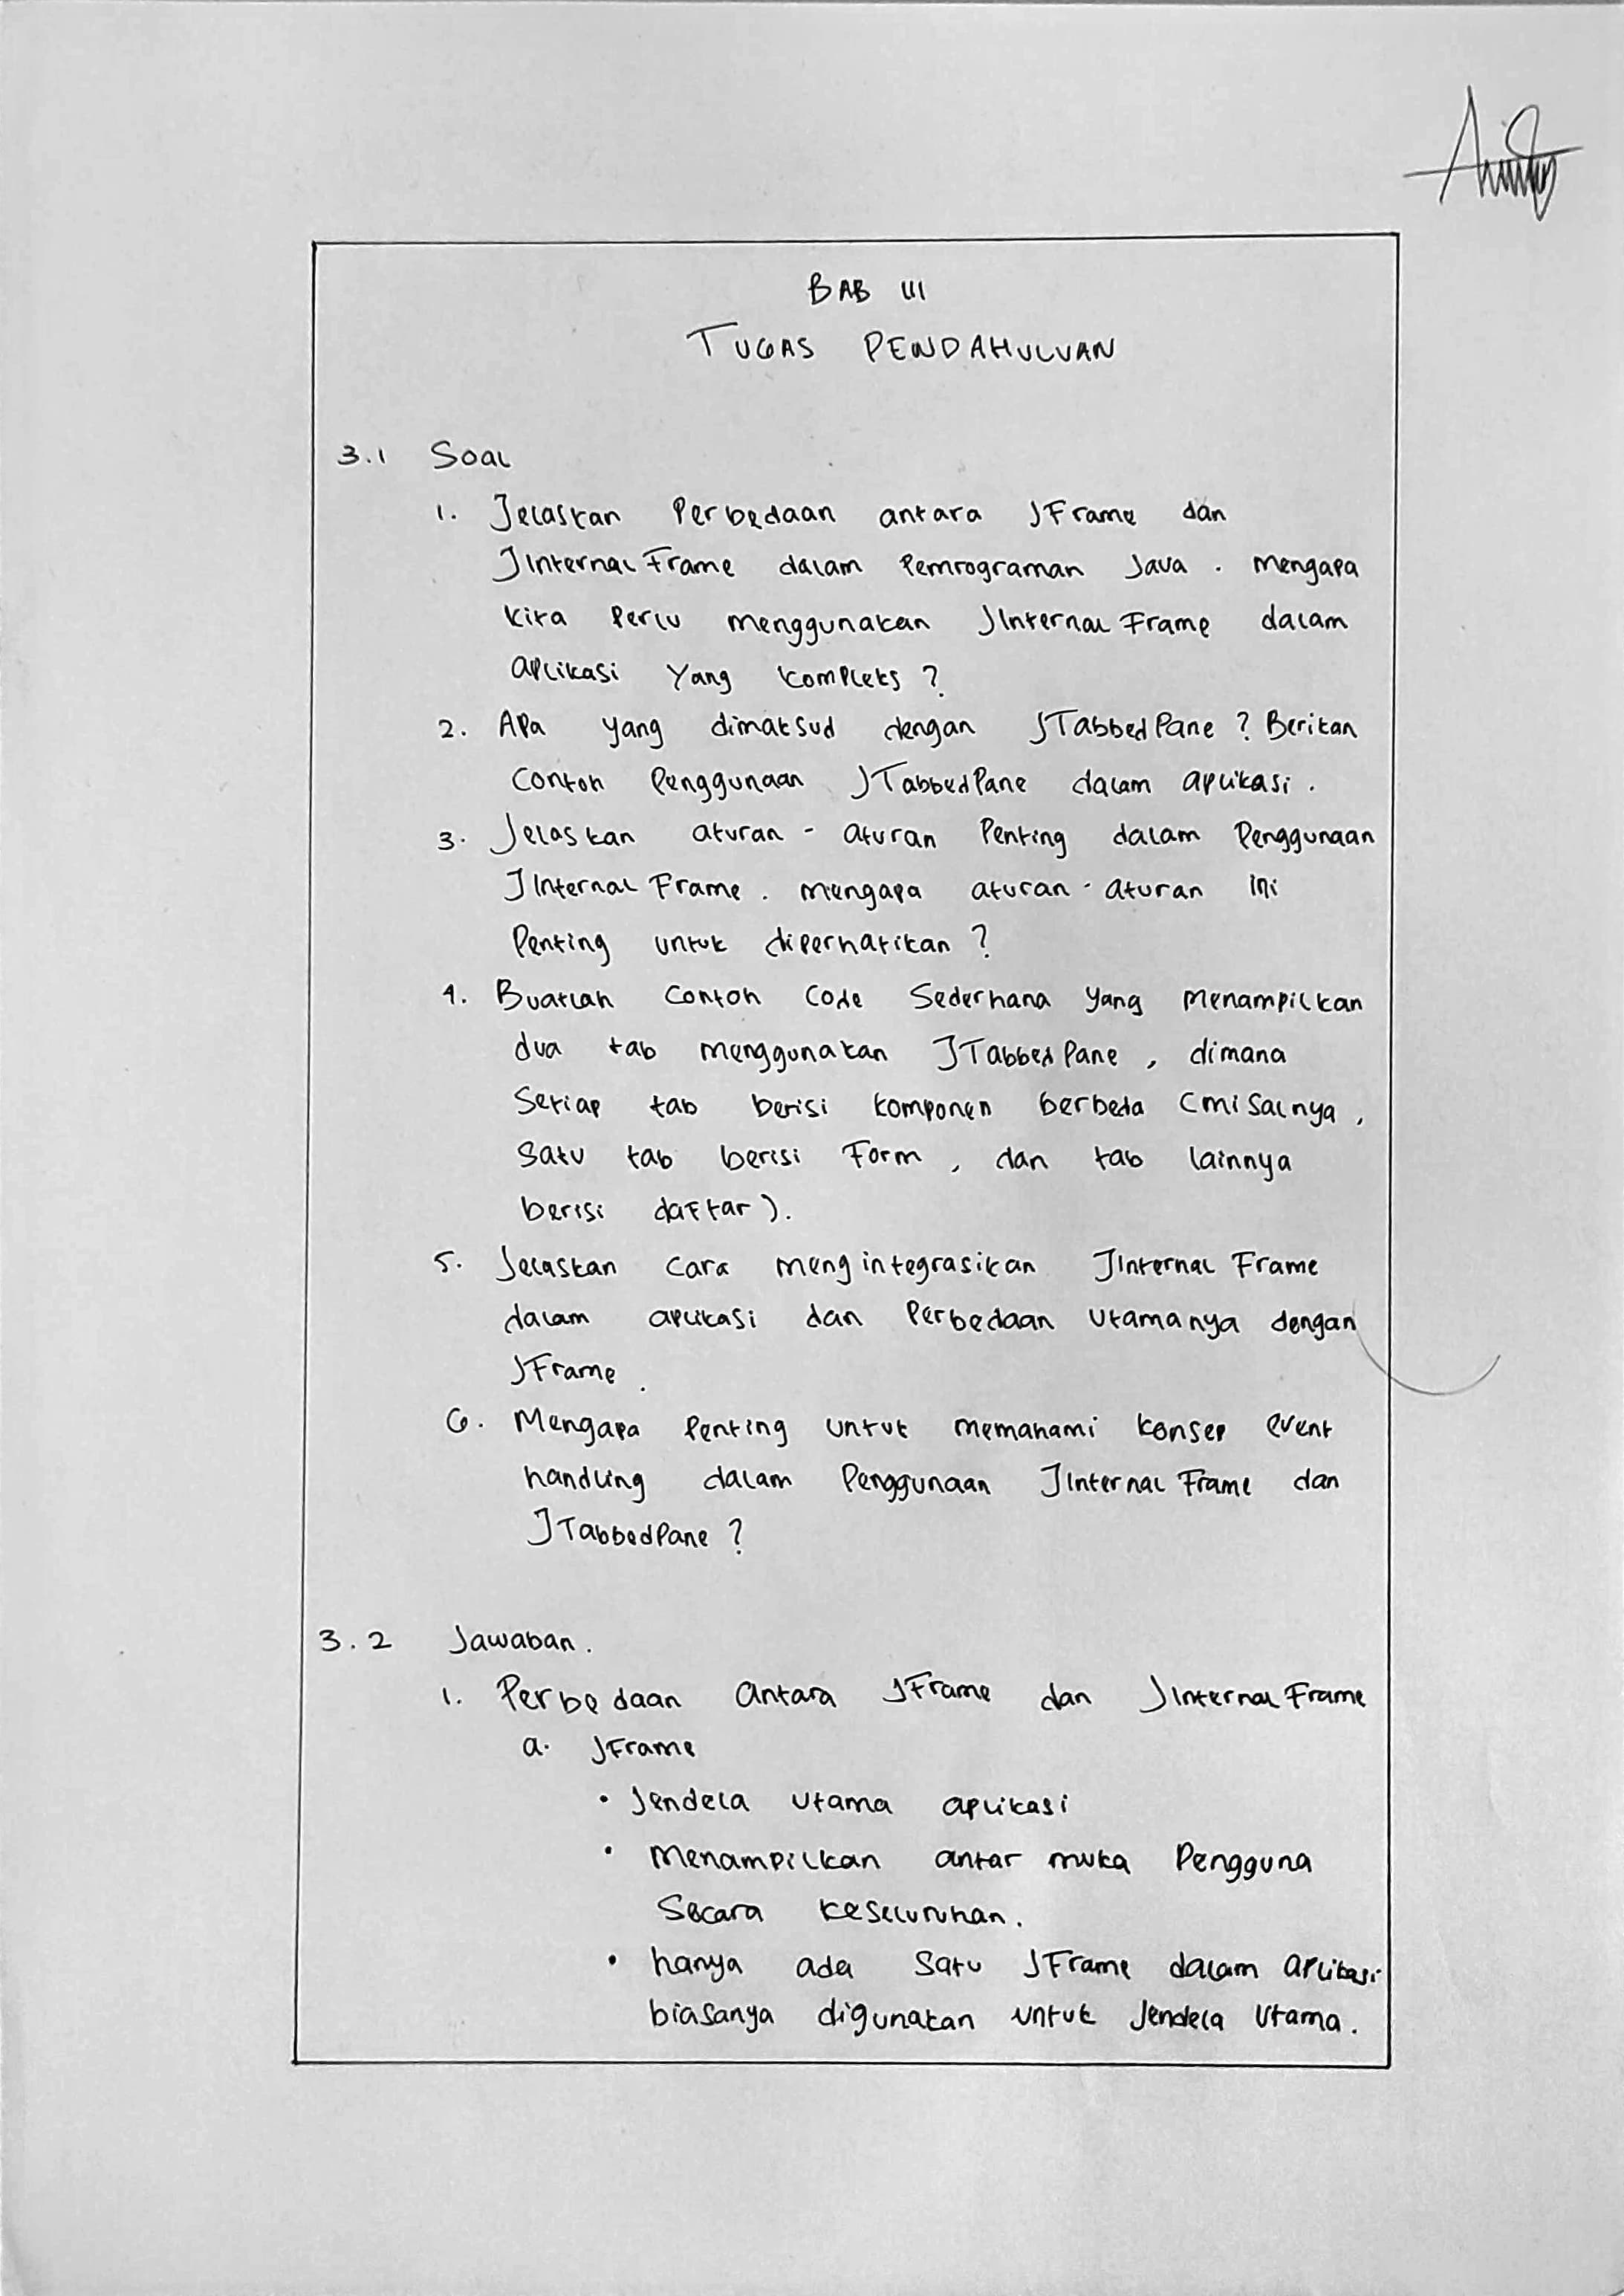 BAB III
TUGAS PENDAHULUAN
3.1 Soal
1. Jelaskan Perbedaan antara JFrame dan
JInternalFrame dalam Pemrograman Java. mengapa
kita perlu menggunakan JInternalFrame dalam
aplikasi Yang kompleks?
2. Apa yang dimaksud dengan JTabbedPane? Berikan
contoh Penggunaan JTabbedPane dalam aplikasi.
3. Jelaskan aturan - aturan Penting dalam Penggunaan
JInternalFrame. mengapa aturan-aturan ini
Penting untuk diperhatikan?
4. Buatlah contoh code Sederhana yang menampilkan
dua tab menggunakan JTabbedPane, dimana
Setiap tab berisi komponen berbeda (misalnya,
Satu tab berisi Form, dan tab lainnya
berisi daftar).
5. Jelaskan cara mengintegrasikan JInternalFrame
dalam aplikasi dan Perbedaan Utamanya dengan
JFrame.
6. Mengapa Penting untuk memahami konsep event
handling dalam Penggunaan JInternalFrame dan
JTabbedPane?
3.2 Jawaban.
1. Perbedaan Antara JFrame dan JInternalFrame
a. JFrame
• Jendela utama aplikasi
• Menampilkan antar muka Pengguna
Secara keseluruhan.
• hanya ada Satu JFrame dalam aplikasi
biasanya digunakan untuk Jendela Utama.